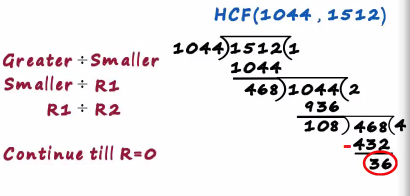 HCF(1044 , 1512)
1044)1512(1
Greater ÷ Smaller
1044
Smaller ÷ R1
468)1044(2
R1 ÷ R2
936
108)468(4
-432
Continue till R=0
36